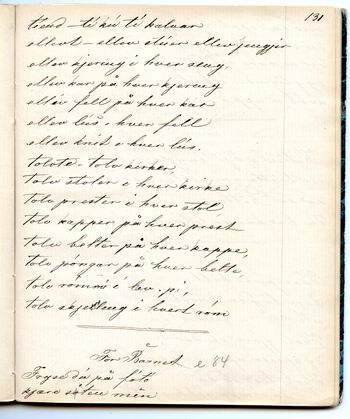 131
tiend - ti kú ti kalvar
ellevt - ellev stúer ellev jengjir
ellev kjering i hver seng,
ellev kar på hver kjering
ellev fell på hver kar
ellev lús i hver fell
ellev knit i hver lús.
tolvte - tolv kirker,
tolv stoler i hver kirke
tolv prester i hver stol,
tolv kapper på hver prest
tolv belter på hver kappe,
tolv póngar på hver belte,
tolv rómm i
tolv skjelling i hvert róm
For Barnet e 84
på fóto
kjære